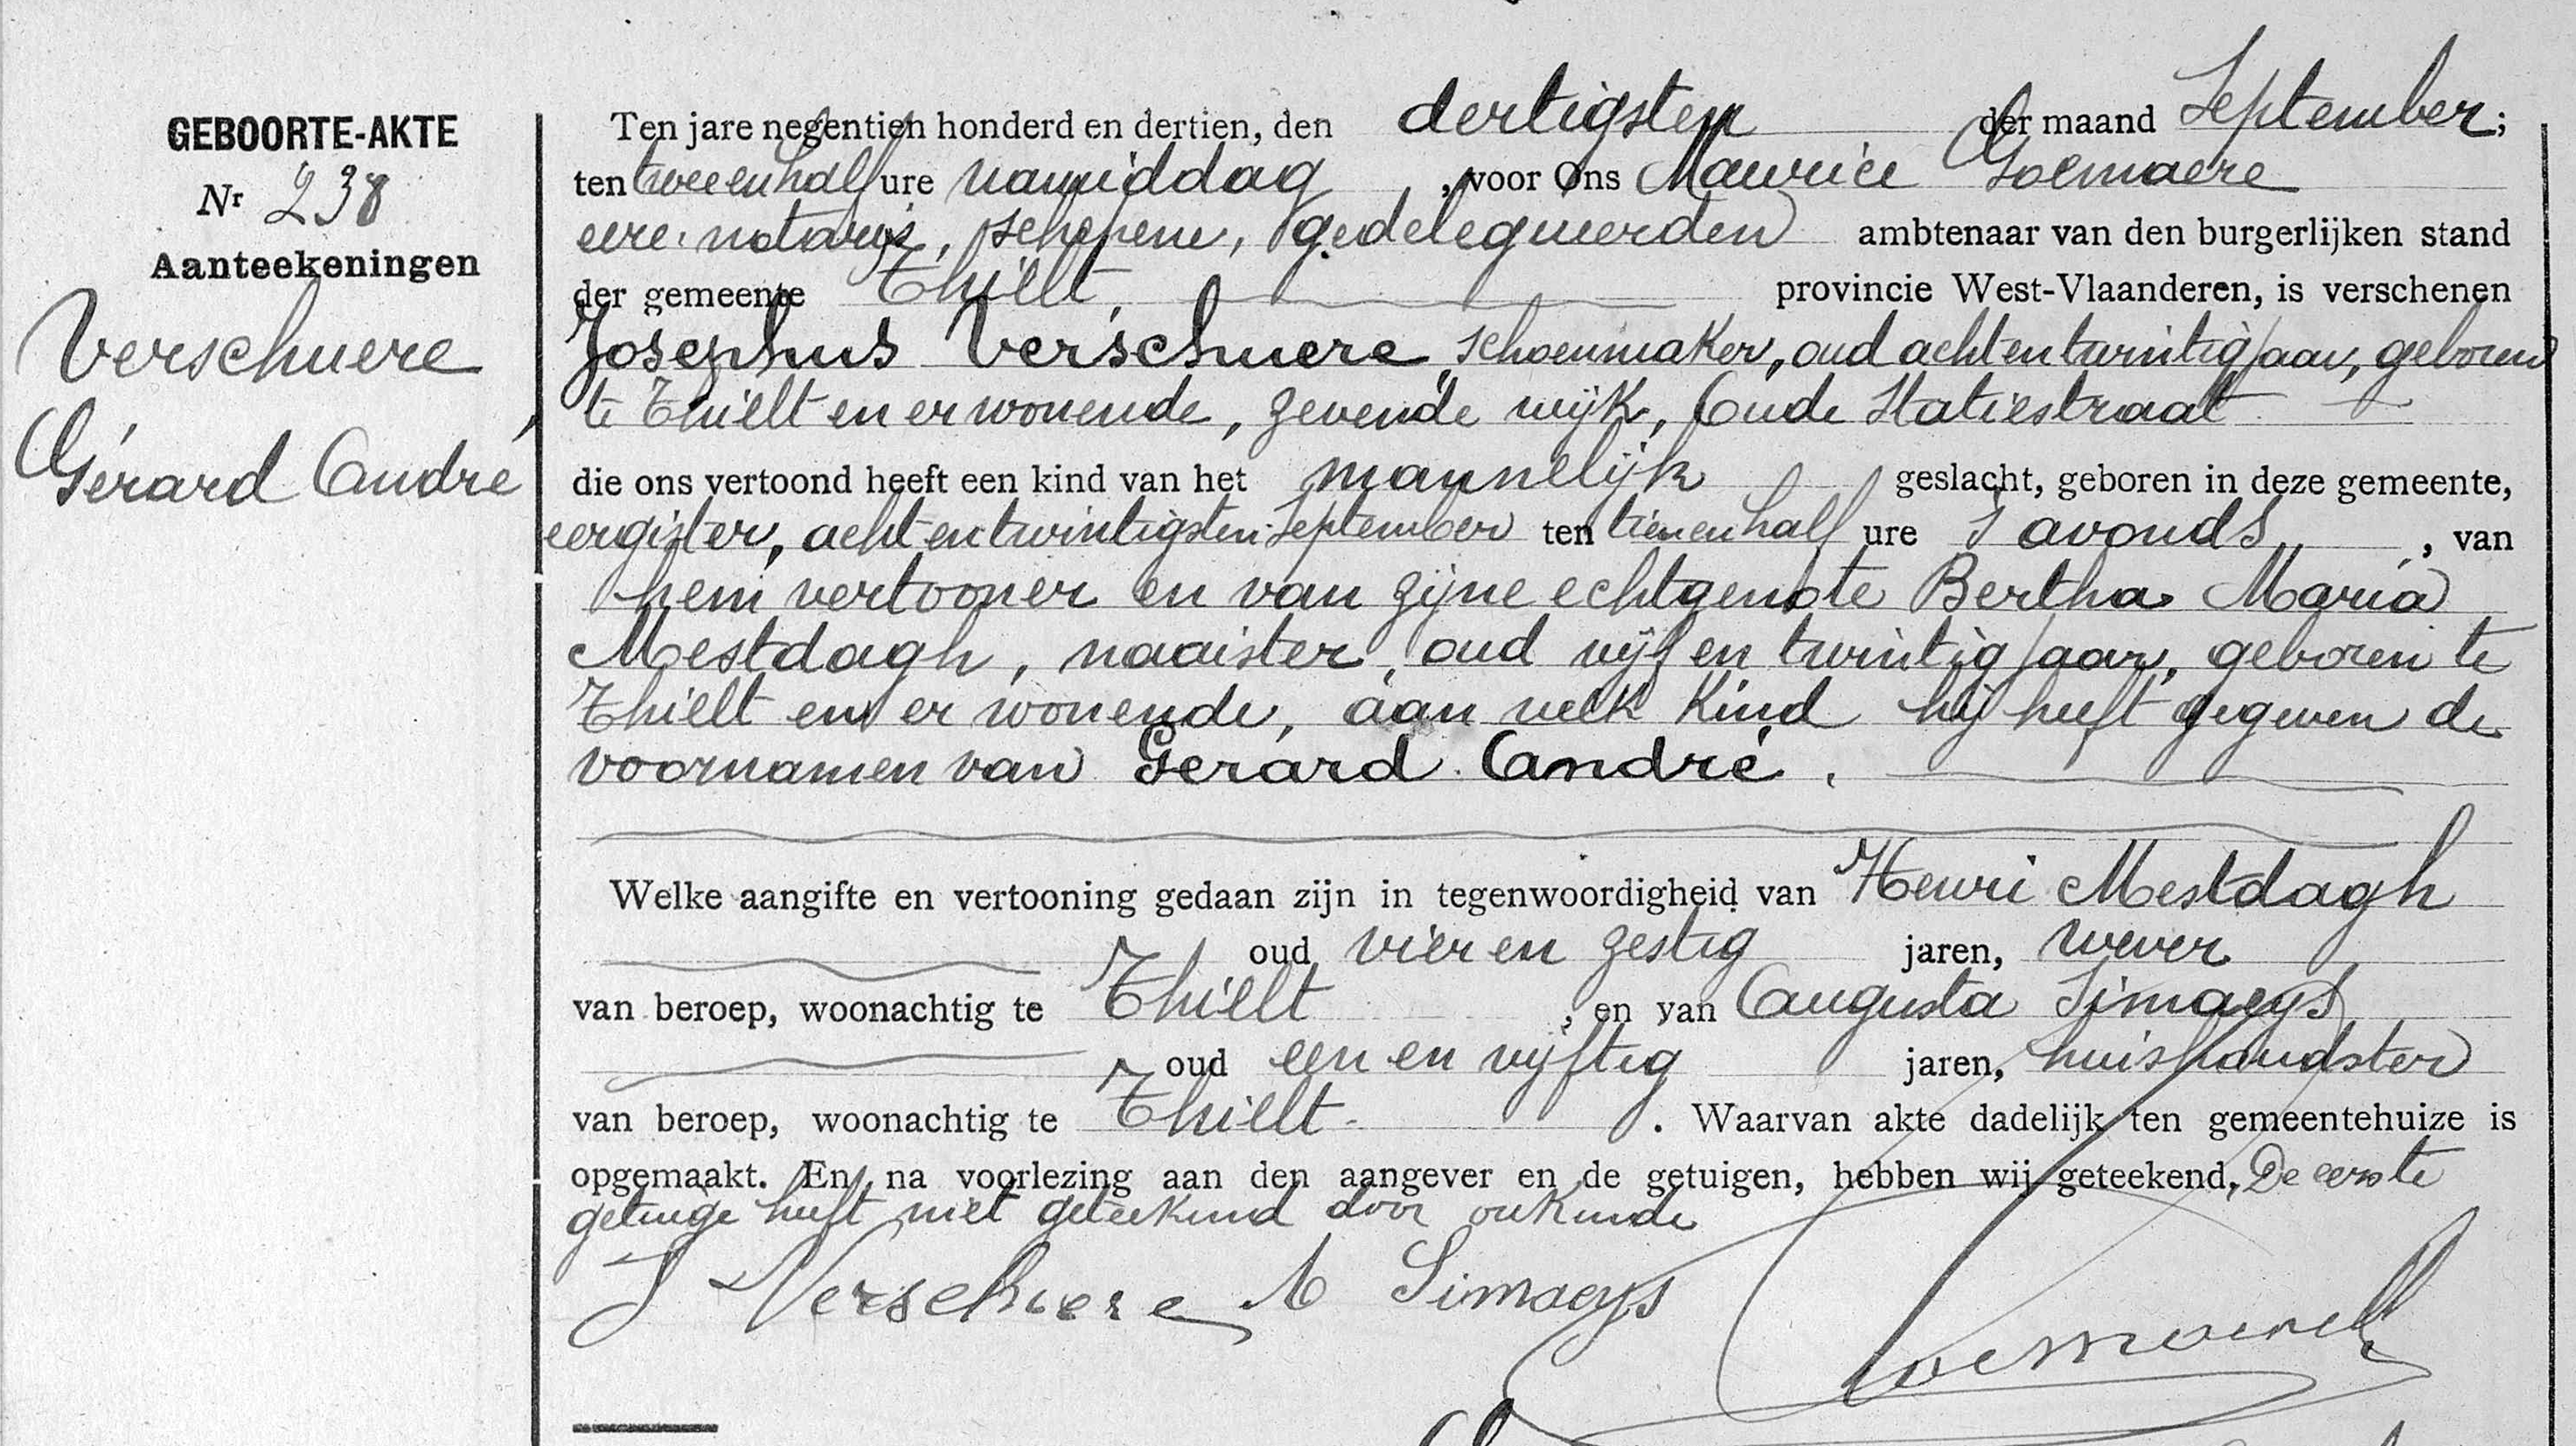 GEBOORTE-AKTE
Nr 238
Aanteekeningen
Verschuere,
Gérard André
Ten jare negentien honderd en dertien, den dertigsten der maand September;
ten twee en half ure namiddag, voor Ons Maurice Goemaere
eere-notaris, schepene, gedelegueerden ambtenaar van den burgerlijken stand
der gemeente Thielt, provincie West-Vlaanderen, is verschenen
Josephus Verschuere, schoenmaker, oud acht en twintig jaar, geboren
te Thielt en er wonende, zevende wijk, Oude Statiestraat
die ons vertoond heeft een kind van het mannelijk geslacht, geboren in deze gemeente,
eergister, acht en twintigsten September ten tien en half ure 's avonds, van
hem vertooner en van zijne echtgenote Bertha Maria
Mestdagh, naaister, oud vijf en twintig jaar, geboren te
Thielt en er wonende, aan welk kind hij heeft gegeven de
voornamen van Gerard André.
Welke aangifte en vertooning gedaan zijn in tegenwoordigheid van Henri Mestdagh
oud vier en zestig jaren, wever
van beroep, woonachtig te Thielt, en van Augusta Simaeys
oud een en vijftig jaren, huishoudster
van beroep, woonachtig te Thielt. Waarvan akte dadelijk ten gemeentehuize is
opgemaakt. En, na voorlezing aan den aangever en de getuigen, hebben wij geteekend. De eerste
getuige heeft niet geteekend door onkunde
J Verschuere A Simaeys
Goemaere